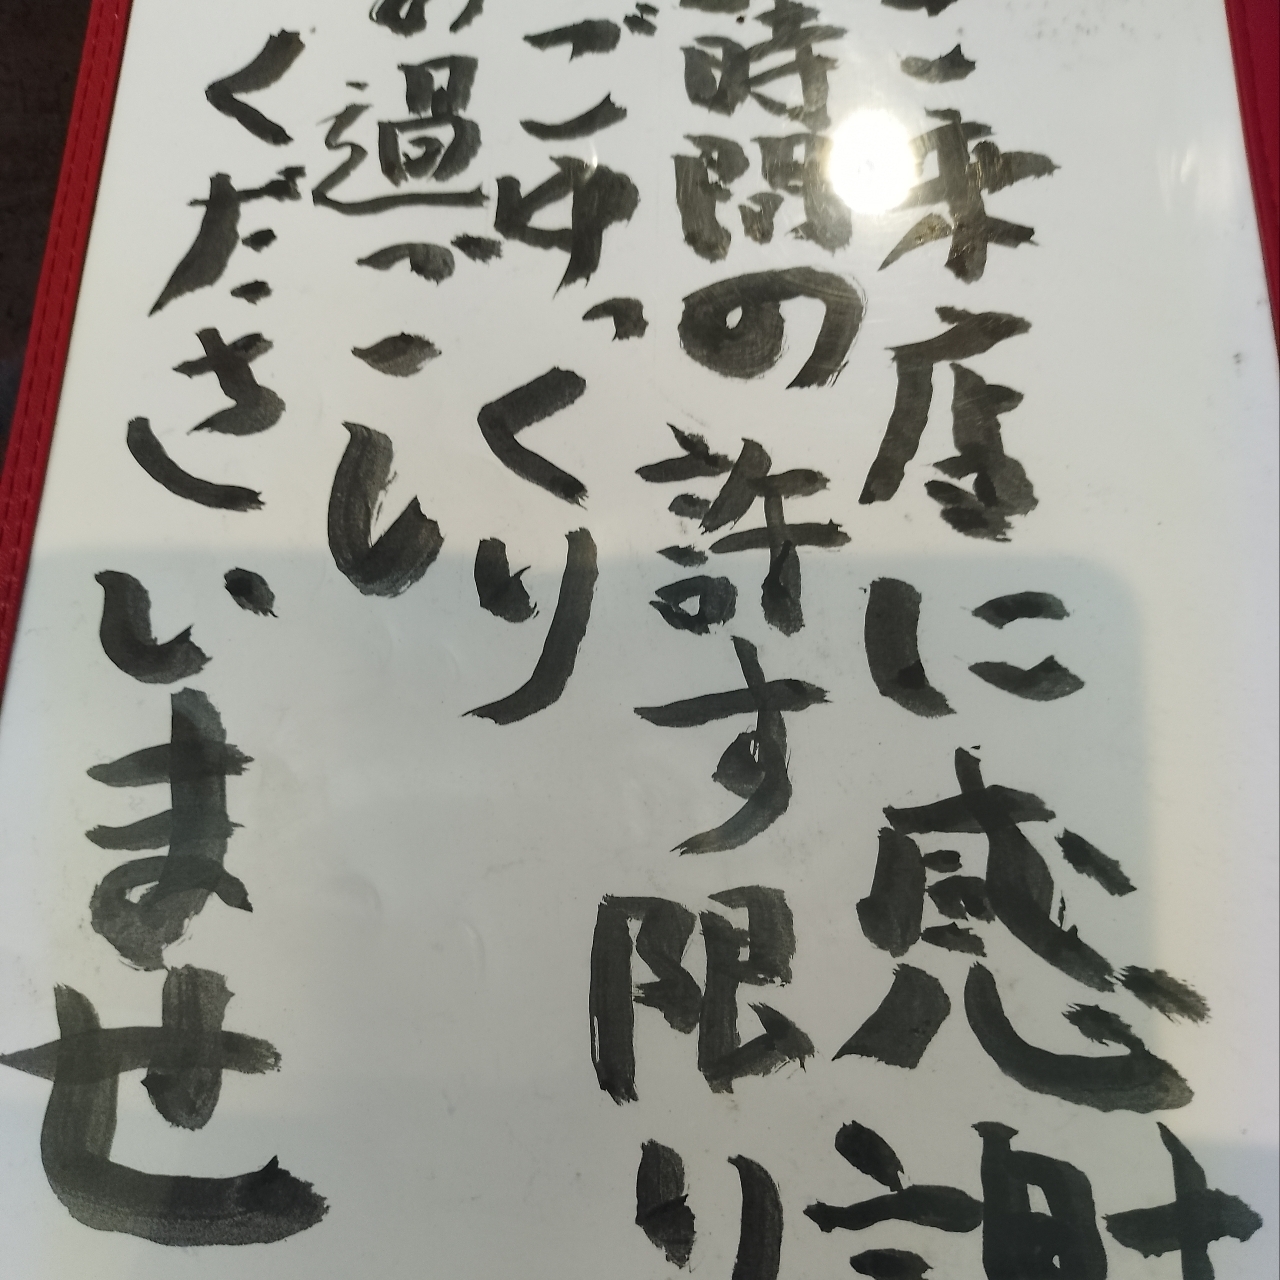 ご来店に感謝
時間の許す限り
ごゆっくり
お過ごし
くださいませ